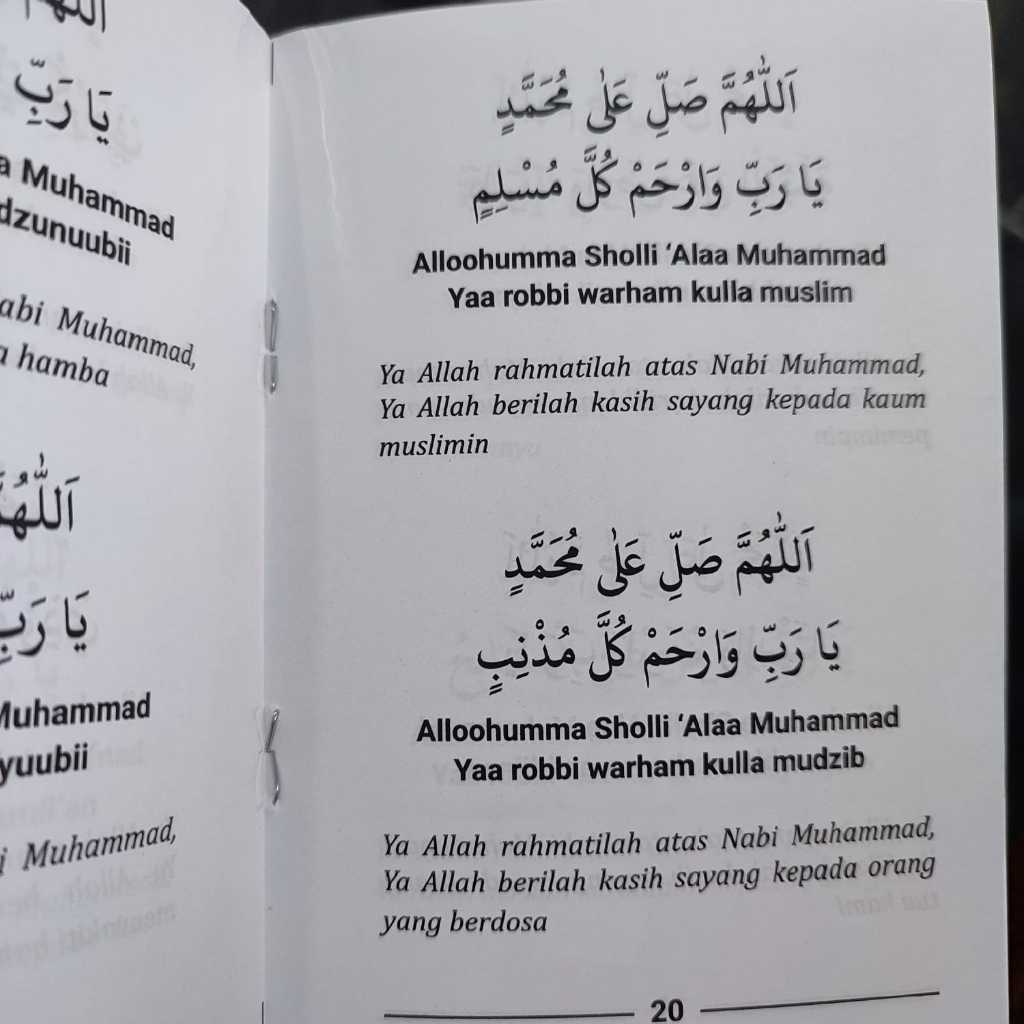 يَا رَبِّ
Muhammad
dzunuubii
Muhammad,
hamba
يَا رَبِّ
Muhammad
Muhammad,
اَللّٰهُمَّ صَلِّ عَلٰى مُحَمَّدٍ
يَا رَبِّ وَارْحَمْ كُلَّ مُسْلِمٍ
Alloohumma Sholli ‘Alaa Muhammad
Yaa robbi warham kulla muslim
Ya Allah rahmatilah atas Nabi Muhammad,
Ya Allah berilah kasih sayang kepada kaum
muslimin
اَللّٰهُمَّ صَلِّ عَلٰى مُحَمَّدٍ
يَا رَبِّ وَارْحَمْ كُلَّ مُذْنِبٍ
Alloohumma Sholli ‘Alaa Muhammad
Yaa robbi warham kulla mudzib
Ya Allah rahmatilah atas Nabi Muhammad,
Ya Allah berilah kasih sayang kepada orang
yang berdosa
20